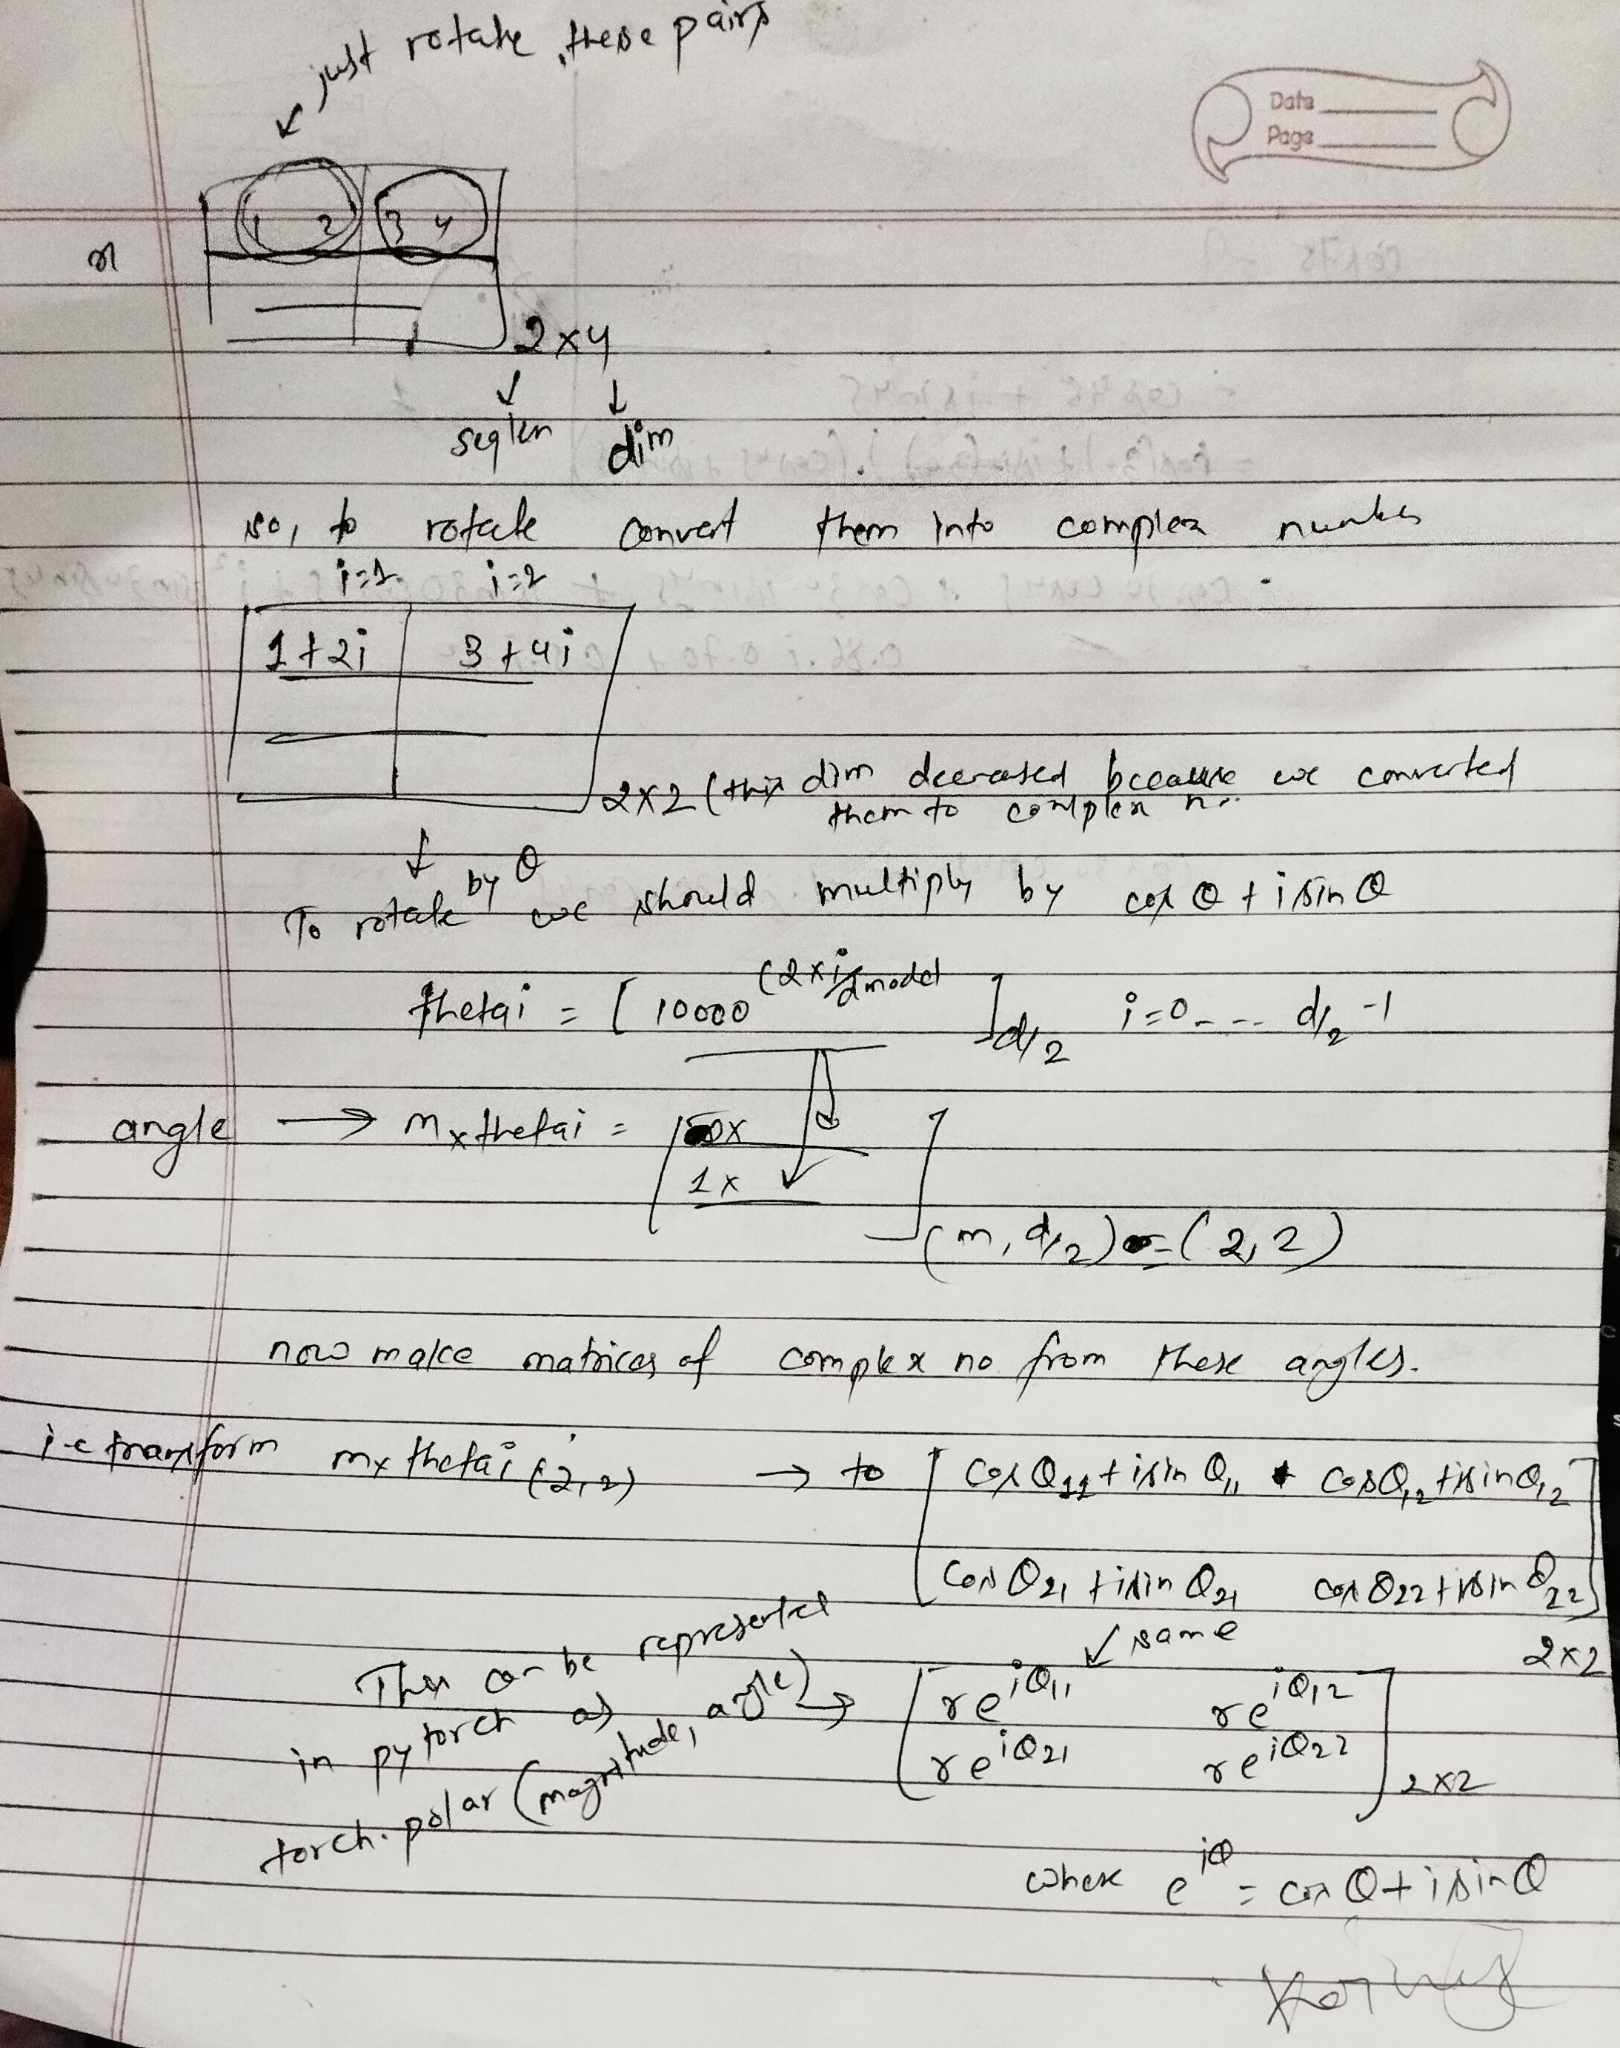 just rotate these pairs
Date
Page
1 2 3 4
2x4
seqlen dim
so, to rotate convert them into complex number
i=1 i=2
1+2i 3+4i
2x2 (this dim decreased because we converted
them to complex no.
To rotate by θ we should multiply by cos θ + i sin θ
thetai = [ 10000^(2xi/dmodel ]d/2 i=0--- d/2 -1
angle → mxthetai = [ 0x
1x
] (m, d/2) = (2, 2)
now make matrices of complex no from these angles.
i.e transform mx thetai (2,2) → to [ cos θ11 + i sin θ11 cos θ12 + i sin θ12
cos θ21 + i sin θ21 cos θ22 + i sin θ22 ]
2x2
↓ same
This can be represented
in pytorch as
torch.polar (magnitude, angle) →
[ re^iθ11 re^iθ12
re^iθ21 re^iθ22 ] 2x2
where e^iθ = cos θ + i sin θ